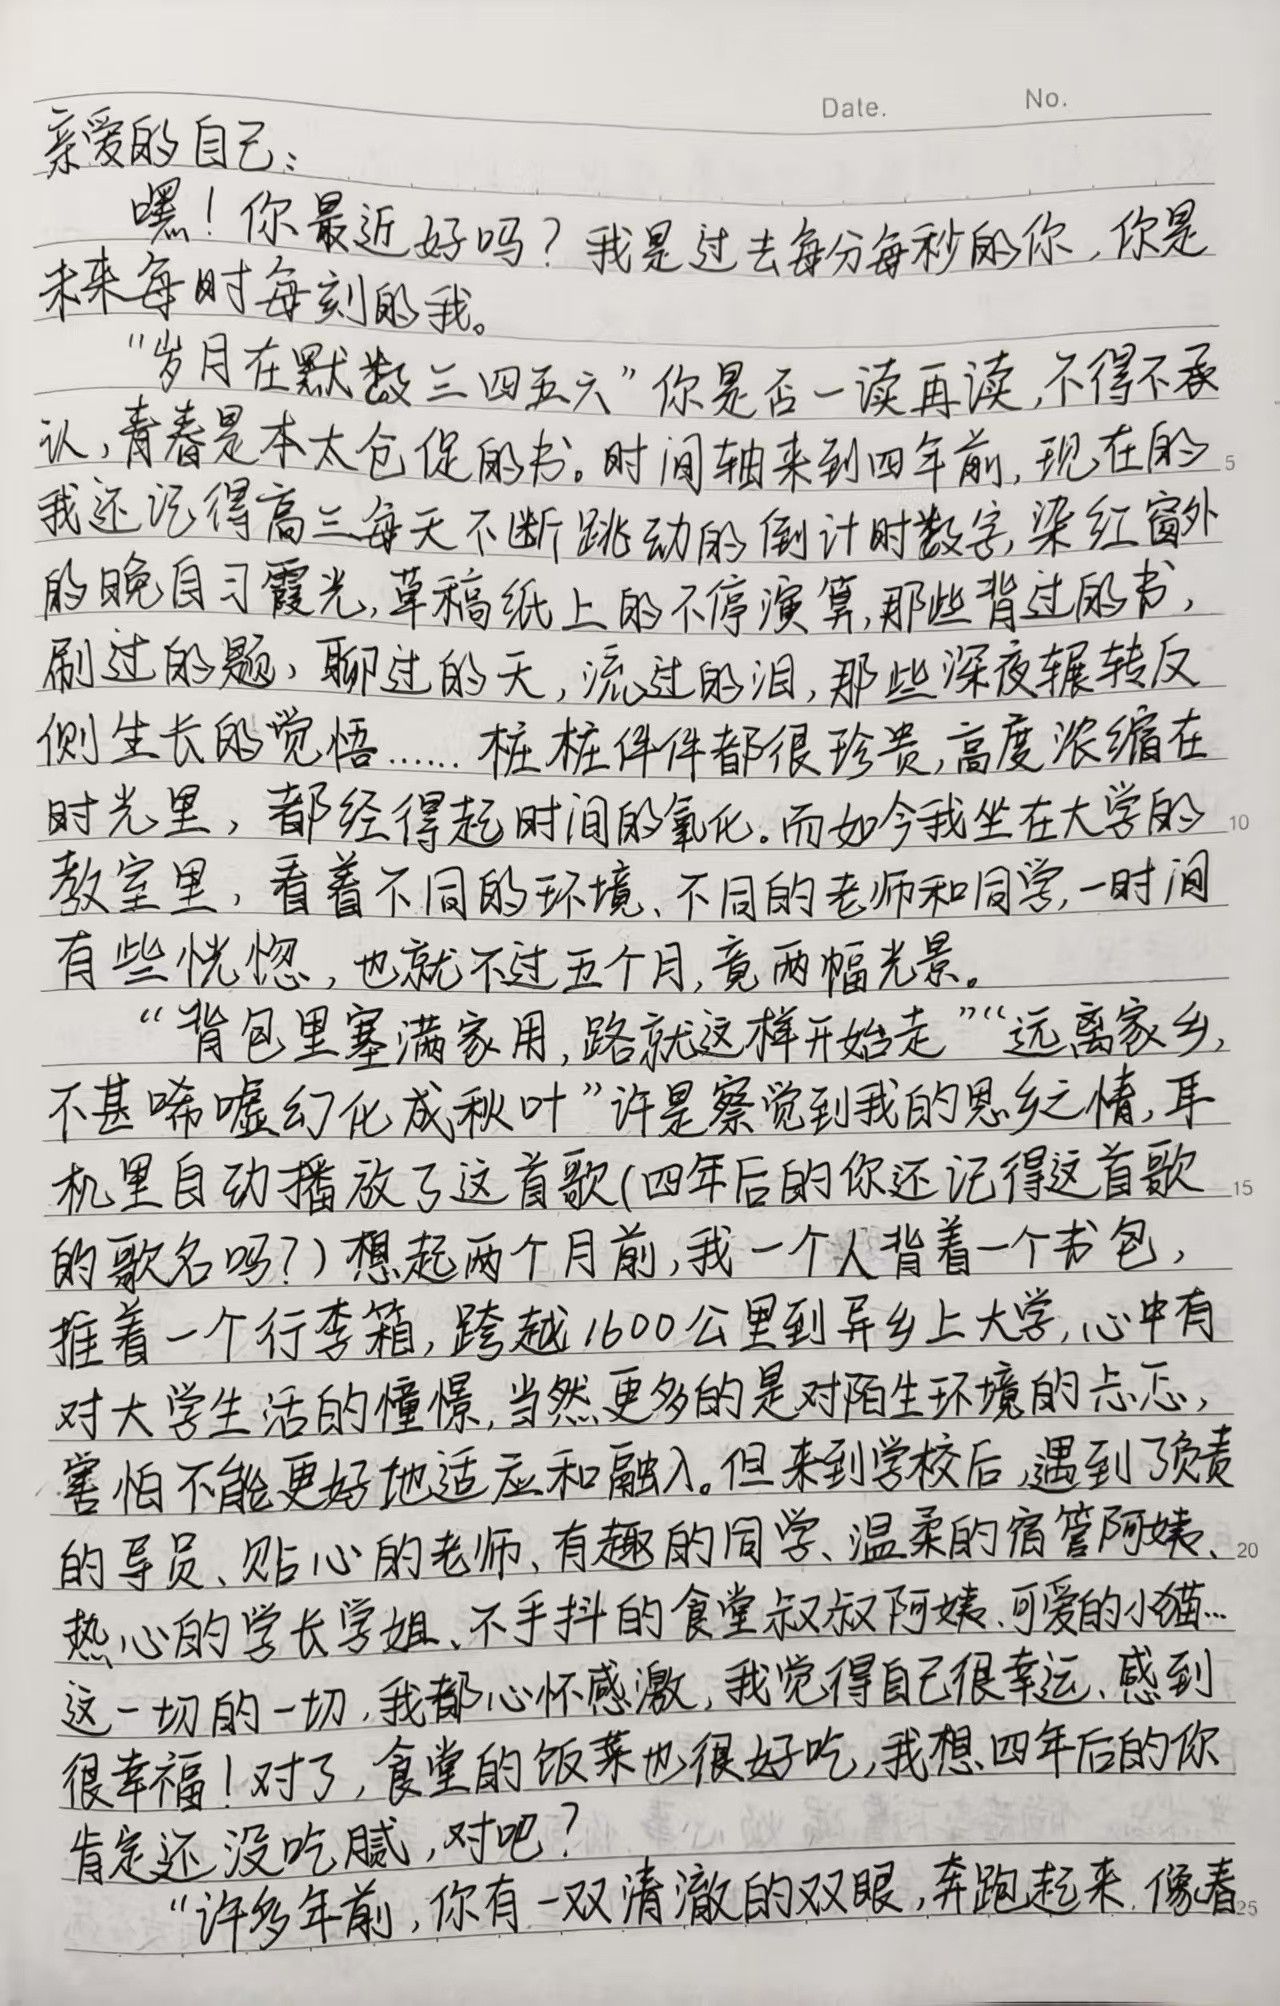 Date. No.
亲爱的自己:
嘿!你最近好吗?我是过去每分每秒的你,你是
未来每时每刻的我。
"岁月在默数三四五六"你是否一读再读,不得不承
认,青春是本太仓促的书。时间轴来到四年前,现在的 5
我还记得高三每天不断跳动的倒计时数字,染红窗外
的晚自习霞光,草稿纸上的不停演算,那些背过的书,
刷过的题,聊过的天,流过的泪,那些深夜辗转反
侧生长的觉悟……桩桩件件都很珍贵,高度浓缩在
时光里,都经得起时间的氧化。而如今我坐在大学的 10
教室里,看着不同的环境、不同的老师和同学,一时间
有些恍惚,也就不过五个月,竟两幅光景。
“背包里塞满家用,路就这样开始走”“远离家乡,
不甚唏嘘幻化成秋叶”许是察觉到我的思乡之情,耳
机里自动播放了这首歌(四年后的你还记得这首歌 15
的歌名吗?)想起两个月前,我一个人背着一个书包,
推着一个行李箱,跨越1600公里到异乡上大学,心中有
对大学生活的憧憬,当然更多的是对陌生环境的忐忑,
害怕不能更好地适应和融入。但来到学校后,遇到了负责
的导员、贴心的老师、有趣的同学、温柔的宿管阿姨、 20
热心的学长学姐、不手抖的食堂叔叔阿姨、可爱的小猫…
这一切的一切,我都心怀感激,我觉得自己很幸运、感到
很幸福!对了,食堂的饭菜也很好吃,我想四年后的你
肯定还没吃腻,对吧?
“许多年前,你有一双清澈的双眼,奔跑起来,像春 25